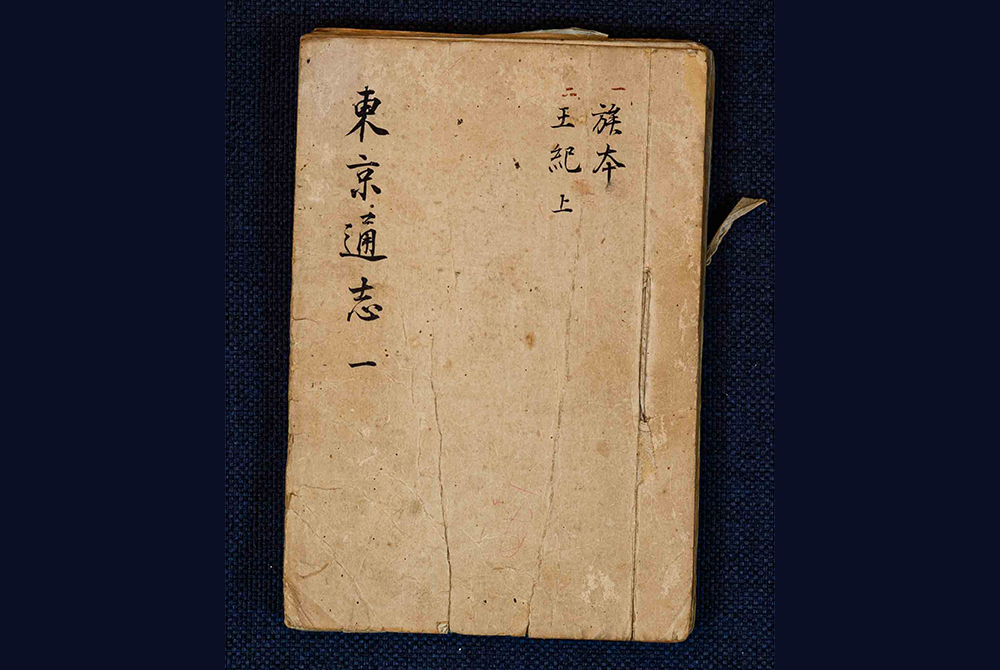 一 族本
二 王紀 上
東京通志 一